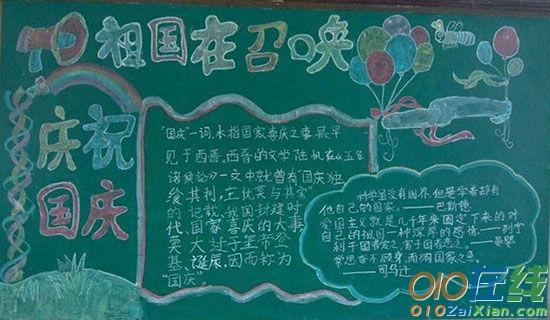 祖国在召唤
庆祝
国庆
"国庆"一词,本指国家喜庆之事,最早
见于西晋。西晋的文学陆机在《五等
诸侯论》一文中就曾有"国庆独
飨其利,主忧莫与其害"
的记载,我国封建时
代,国家喜庆的大事
莫大过于皇帝登
基、诞辰,因而称为
"国庆。
科学虽没有国界,但是学者却有
他自己的国家。——巴斯德
爱国主义就是几千年来固定下来的对
自己的祖国一种深厚的感情。——列宁
利于国者爱之,害于国者恶之。——晏婴
常思奋不顾身,而殉国家之急。
——司马迁
010在线
010ZaiXian.com